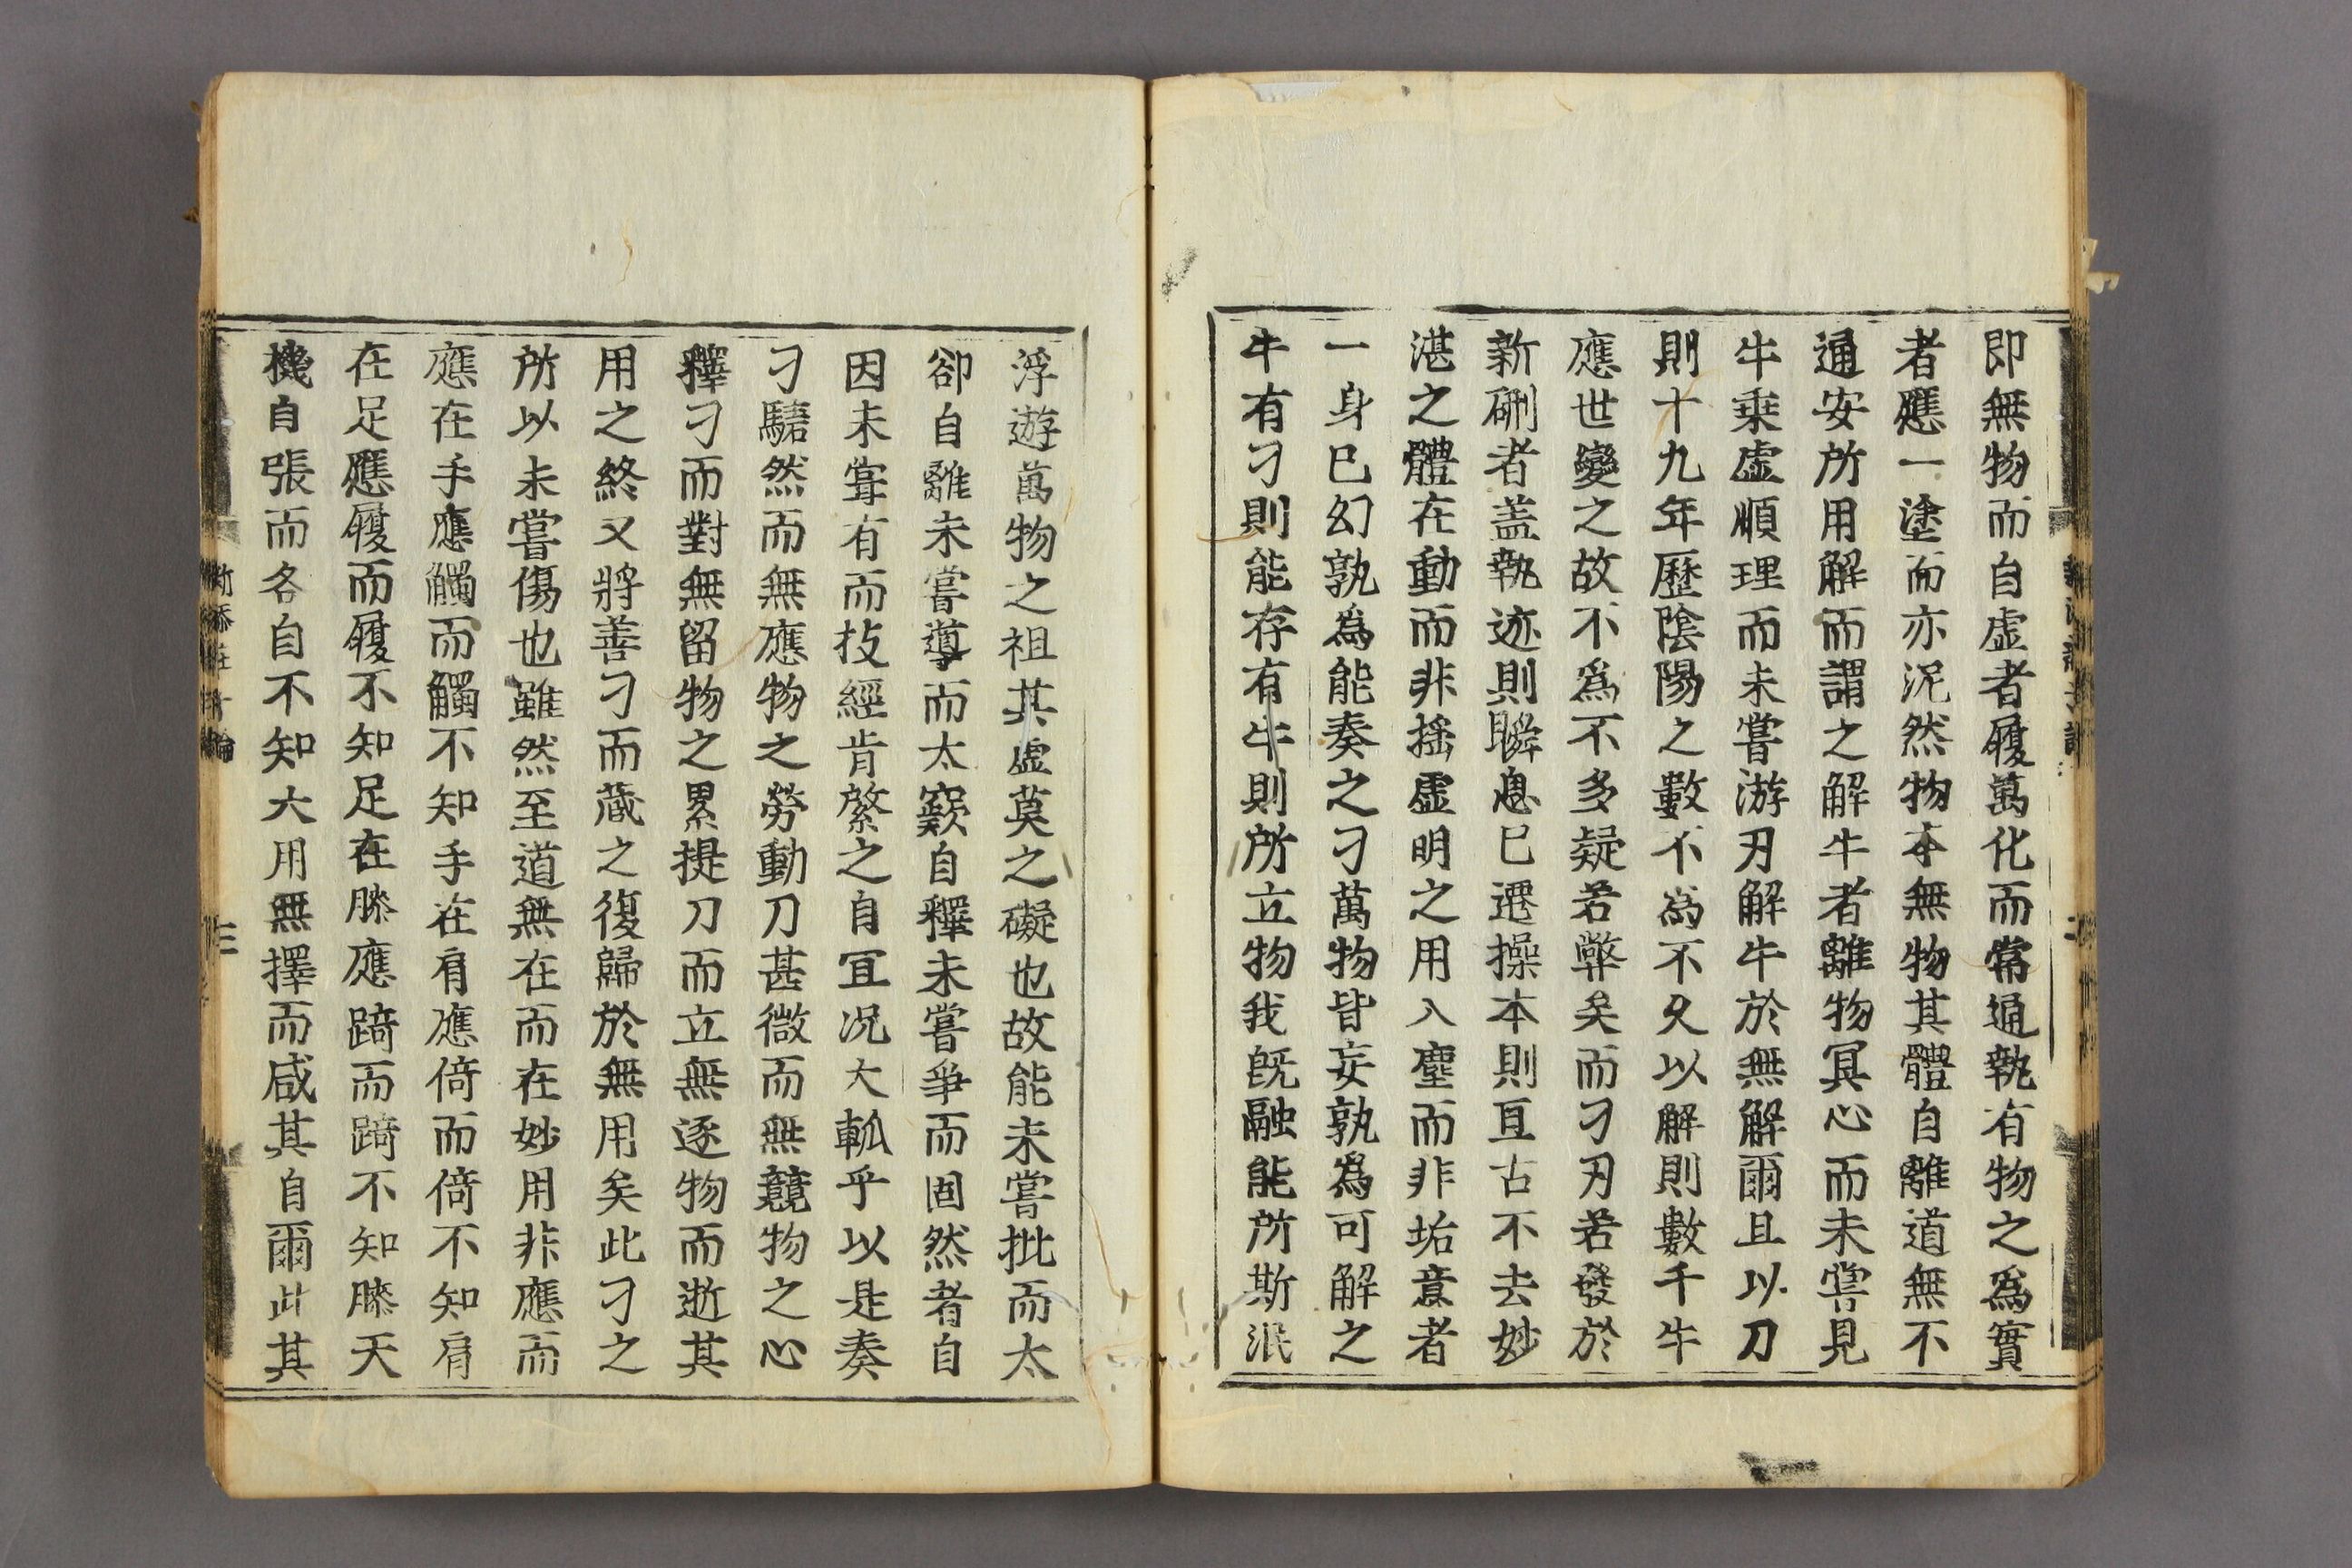 即無物而自虛者履萬化而常通執有物之爲實
者應一塗而亦泥然物本無物其體自離道無不
通安所用解而謂之解牛者離物冥心而未嘗見
牛乘虛順理而未嘗游刃解牛於無解爾且以刀
則十九年歷陰陽之數不爲不久以解則數千牛
應世變之故不爲不多疑若弊矣而刁刃若發於
新硎者蓋執迹則瞬息已遷操本則亘古不去妙
湛之體在動而非搖虛明之用入塵而非垢意者
一身已幻孰爲能奏之刁萬物皆妄孰爲可解之
牛有刁則能存有牛則所立物我旣融能所斯泯
浮遊萬物之祖其虛莫之礙也故能未嘗批而太
卻自離未嘗導而太窾自釋未嘗爭而固然者自
因未嘗有而技經肯綮之自冝况大軱乎以是奏
刁騞然而無應物之勞動刀甚微而無競物之心
釋刁而對無留物之累提刀而立無逐物而逝其
用之終又將善刁而藏之復歸於無用矣此刁之
所以未嘗傷也雖然至道無在而在妙用非應而
應在手應觸而觸不知手在肩應倚而倚不知肩
在足應履而履不知足在膝應踦而踦不知膝天
機自張而各自不知大用無擇而咸其自爾此其
新添莊子十論
三